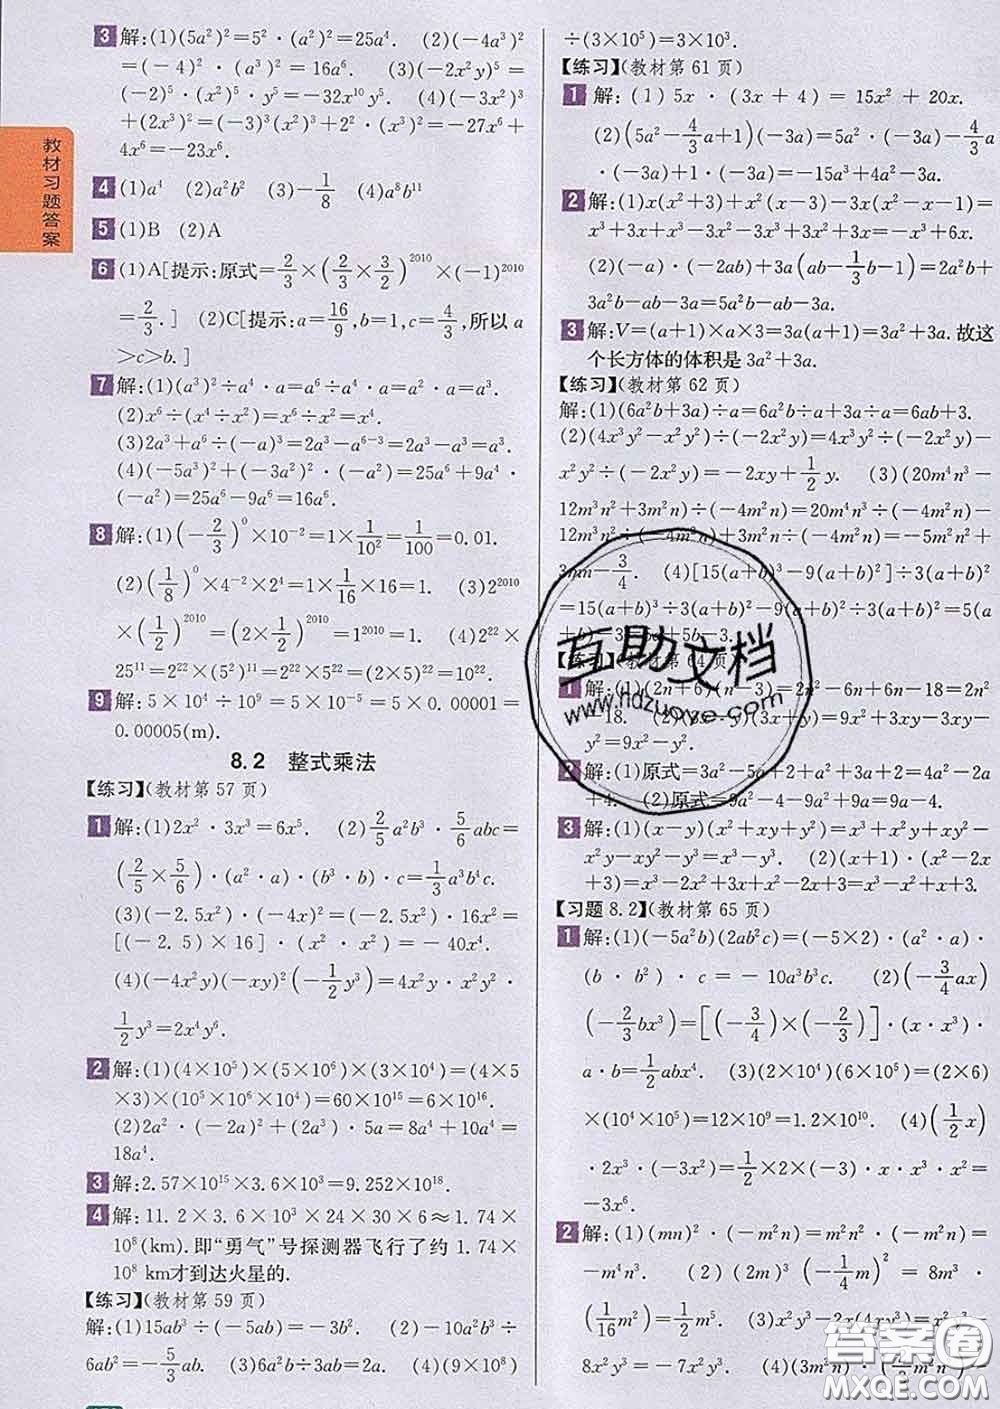 教材习题答案
3 解:(1)(5a²)²=5²·(a²)²=25a⁴. (2)(−4a³)²
=(−4)²·(a³)²=16a⁶. (3)(−2x²y)⁵=
(−2)⁵·(x²)⁵·y⁵=−32x¹⁰y⁵. (4)(−3x²)³
+(2x³)²=(−3)³(x²)³+2²·(x³)²=−27x⁶+
4x⁶=−23x⁶.
4 (1)a⁴ (2)a²b² (3)−1/8 (4)a⁸b¹¹
5 (1)B (2)A
6 (1)A[提示:原式=2/3×(2/3×3/2)²⁰¹⁰×(−1)²⁰¹⁰
=2/3.] (2)C[提示:a=16/9,b=1,c=4/3,所以a
>c>b.]
7 解:(1)(a³)²÷a⁴·a=a⁶÷a⁴·a=a²·a=a³.
(2)x⁶÷(x⁴÷x²)=x⁶÷x²=x⁴.
(3)2a³+a⁶÷(−a)³=2a³−a⁶⁻³=2a³−a³=a³.
(4)(−5a³)²+(−3a²)²·(−a²)=25a⁶+9a⁴·
(−a²)=25a⁶−9a⁶=16a⁶.
8 解:(1)(−2/3)⁰×10⁻²=1×1/10²=1/100=0.01.
(2)(1/8)⁰×4⁻²×2⁴=1×1/16×16=1. (3)2²⁰¹⁰
×(1/2)²⁰¹⁰=(2×1/2)²⁰¹⁰=1²⁰¹⁰=1. (4)2²²×
25¹¹=2²²×(5²)¹¹=2²²×5²²=(2×5)²²=10²².
9 解:5×10⁴÷10⁹=5×10⁻⁵=5×0.00001=
0.00005(m).
8.2 整式乘法
【练习】(教材第57页)
1 解:(1)2x²·3x³=6x⁵. (2)2/5a²b³·5/6abc=
(2/5×5/6)·(a²·a)·(b³·b)·c=1/3a³b⁴c.
(3)(−2.5x²)·(−4x)²=(−2.5x²)·16x²=
[(−2.5)×16]·(x²·x²)=−40x⁴.
(4)(−4x²y)(−xy)²(−1/2y³)=4x²y·x²y²·
1/2y³=2x⁴y⁶.
2 解:(1)(4×10⁵)×(5×10⁶)×(3×10⁴)=(4×5
×3)×(10⁵×10⁶×10⁴)=60×10¹⁵=6×10¹⁶.
(2)2a²·(−2a)²+(2a³)·5a=8a⁴+10a⁴=
18a⁴.
3 解:2.57×10¹⁵×3.6×10³=9.252×10¹⁸.
4 解:11.2×3.6×10³×24×30×6≈1.74×
10⁸(km).即“勇气”号探测器飞行了约1.74×
10⁸ km才到达火星的.
【练习】(教材第59页)
解:(1)15ab³÷(−5ab)=−3b². (2)−10a²b³÷
6ab²=−5/3ab. (3)6a²b÷3ab=2a. (4)(9×10⁸)
÷(3×10⁵)=3×10³.
【练习】(教材第61页)
1 解:(1)5x·(3x+4)=15x²+20x.
(2)(5a²−4/3a+1)(−3a)=5a²·(−3a)−4/3a
·(−3a)+1·(−3a)=−15a³+4a²−3a.
2 解:(1)x(x²+3)+x²(x−3)−3x(x²−x−1)=
x³+3x+x³−3x²−3x³+3x²+3x=−x³+6x.
(2)(−a)·(−2ab)+3a(ab−1/3b−1)=2a²b+
3a²b−ab−3a=5a²b−ab−3a.
3 解:V=(a+1)×a×3=3a(a+1)=3a²+3a.故这
个长方体的体积是3a²+3a.
【练习】(教材第62页)
解:(1)(6a²b+3a)÷a=6a²b÷a+3a÷a=6ab+3.
(2)(4x³y²−x²y²)÷(−2x²y)=4x³y²÷(−2x²y)−
x²y²÷(−2x²y)=−2xy+1/2y. (3)(20m⁴n³−
12m³n²+3m²n)÷(−4m²n)=20m⁴n³÷(−4m²n)−
12m³n²÷(−4m²n)+3m²n÷(−4m²n)=−5m²n²+
3mn−3/4. (4)[15(a+b)³−9(a+b)²]÷3(a+b)²
=15(a+b)³÷3(a+b)²−9(a+b)²÷3(a+b)²=5(a+
b)−3=5a+5b−3.
【练习】(教材第64页)
1 解:(1)(2n+6)(n−3)=2n²−6n+6n−18=2n²
−18. (2)(3x−y)(3x+y)=9x²+3xy−3xy−
y²=9x²−y².
2 解:(1)原式=3a²−5a+2+a²−4a+2a
+4. (2)原式=9a²−4−9a²+9a=9a−4.
3 解:(1)(x−y)(x²+xy+y²)=x³+x²y+xy²−
x²y−xy²−y³=x³−y³. (2)(x+1)·(x²−2x
+3)=x³−2x²+3x+x²−2x+3=x³−x²+x+3.
【习题8.2】(教材第65页)
1 解:(1)(−5a²b)(2ab²c)=(−5×2)·(a²·a)·
(b·b²)·c=−10a³b³c. (2)(−3/4ax)
(−2/3bx³)=[(−3/4)×(−2/3)]·(x·x³)·
a·b=1/2abx⁴. (3)(2×10⁴)(6×10⁵)=(2×6)
×(10⁴×10⁵)=12×10⁹=1.2×10¹⁰. (4)(1/2x)
·2x³·(−3x²)=1/2×2×(−3)·x·x³·x²=
−3x⁶.
2 解:(1)(mn)²·(−m²n)=m²n²·(−m²n)=
−m⁴n³. (2)(2m)³·(−1/4m)²=8m³·
(1/16m²)=1/2m⁵. (3)x³y²−2x(4xy²)=
8x²y²=−7x²y². (4)(3m²n)
互助文档
www.hdzuoye.com
答案圈
MXQE.COM